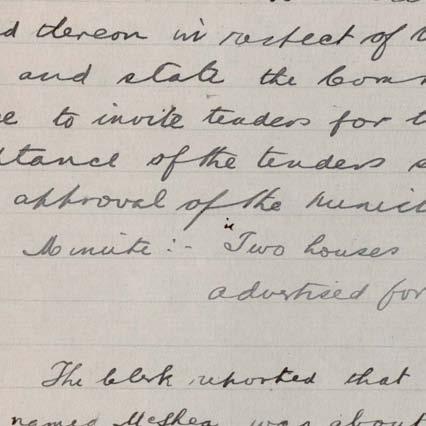 d thereon in respect of
and state the Com
e to invite tenders for t
tance of the tenders s
approval of the Munici
Minute :- Two houses
advertised for
The Clerk reported that
named McShea was about